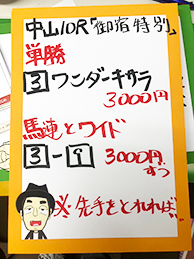 中山10R「御宿特別」
単勝
3 ワンダーキサラ
3000円
馬連とワイド
3-9 3000円
ずつ
※先手をとれれば